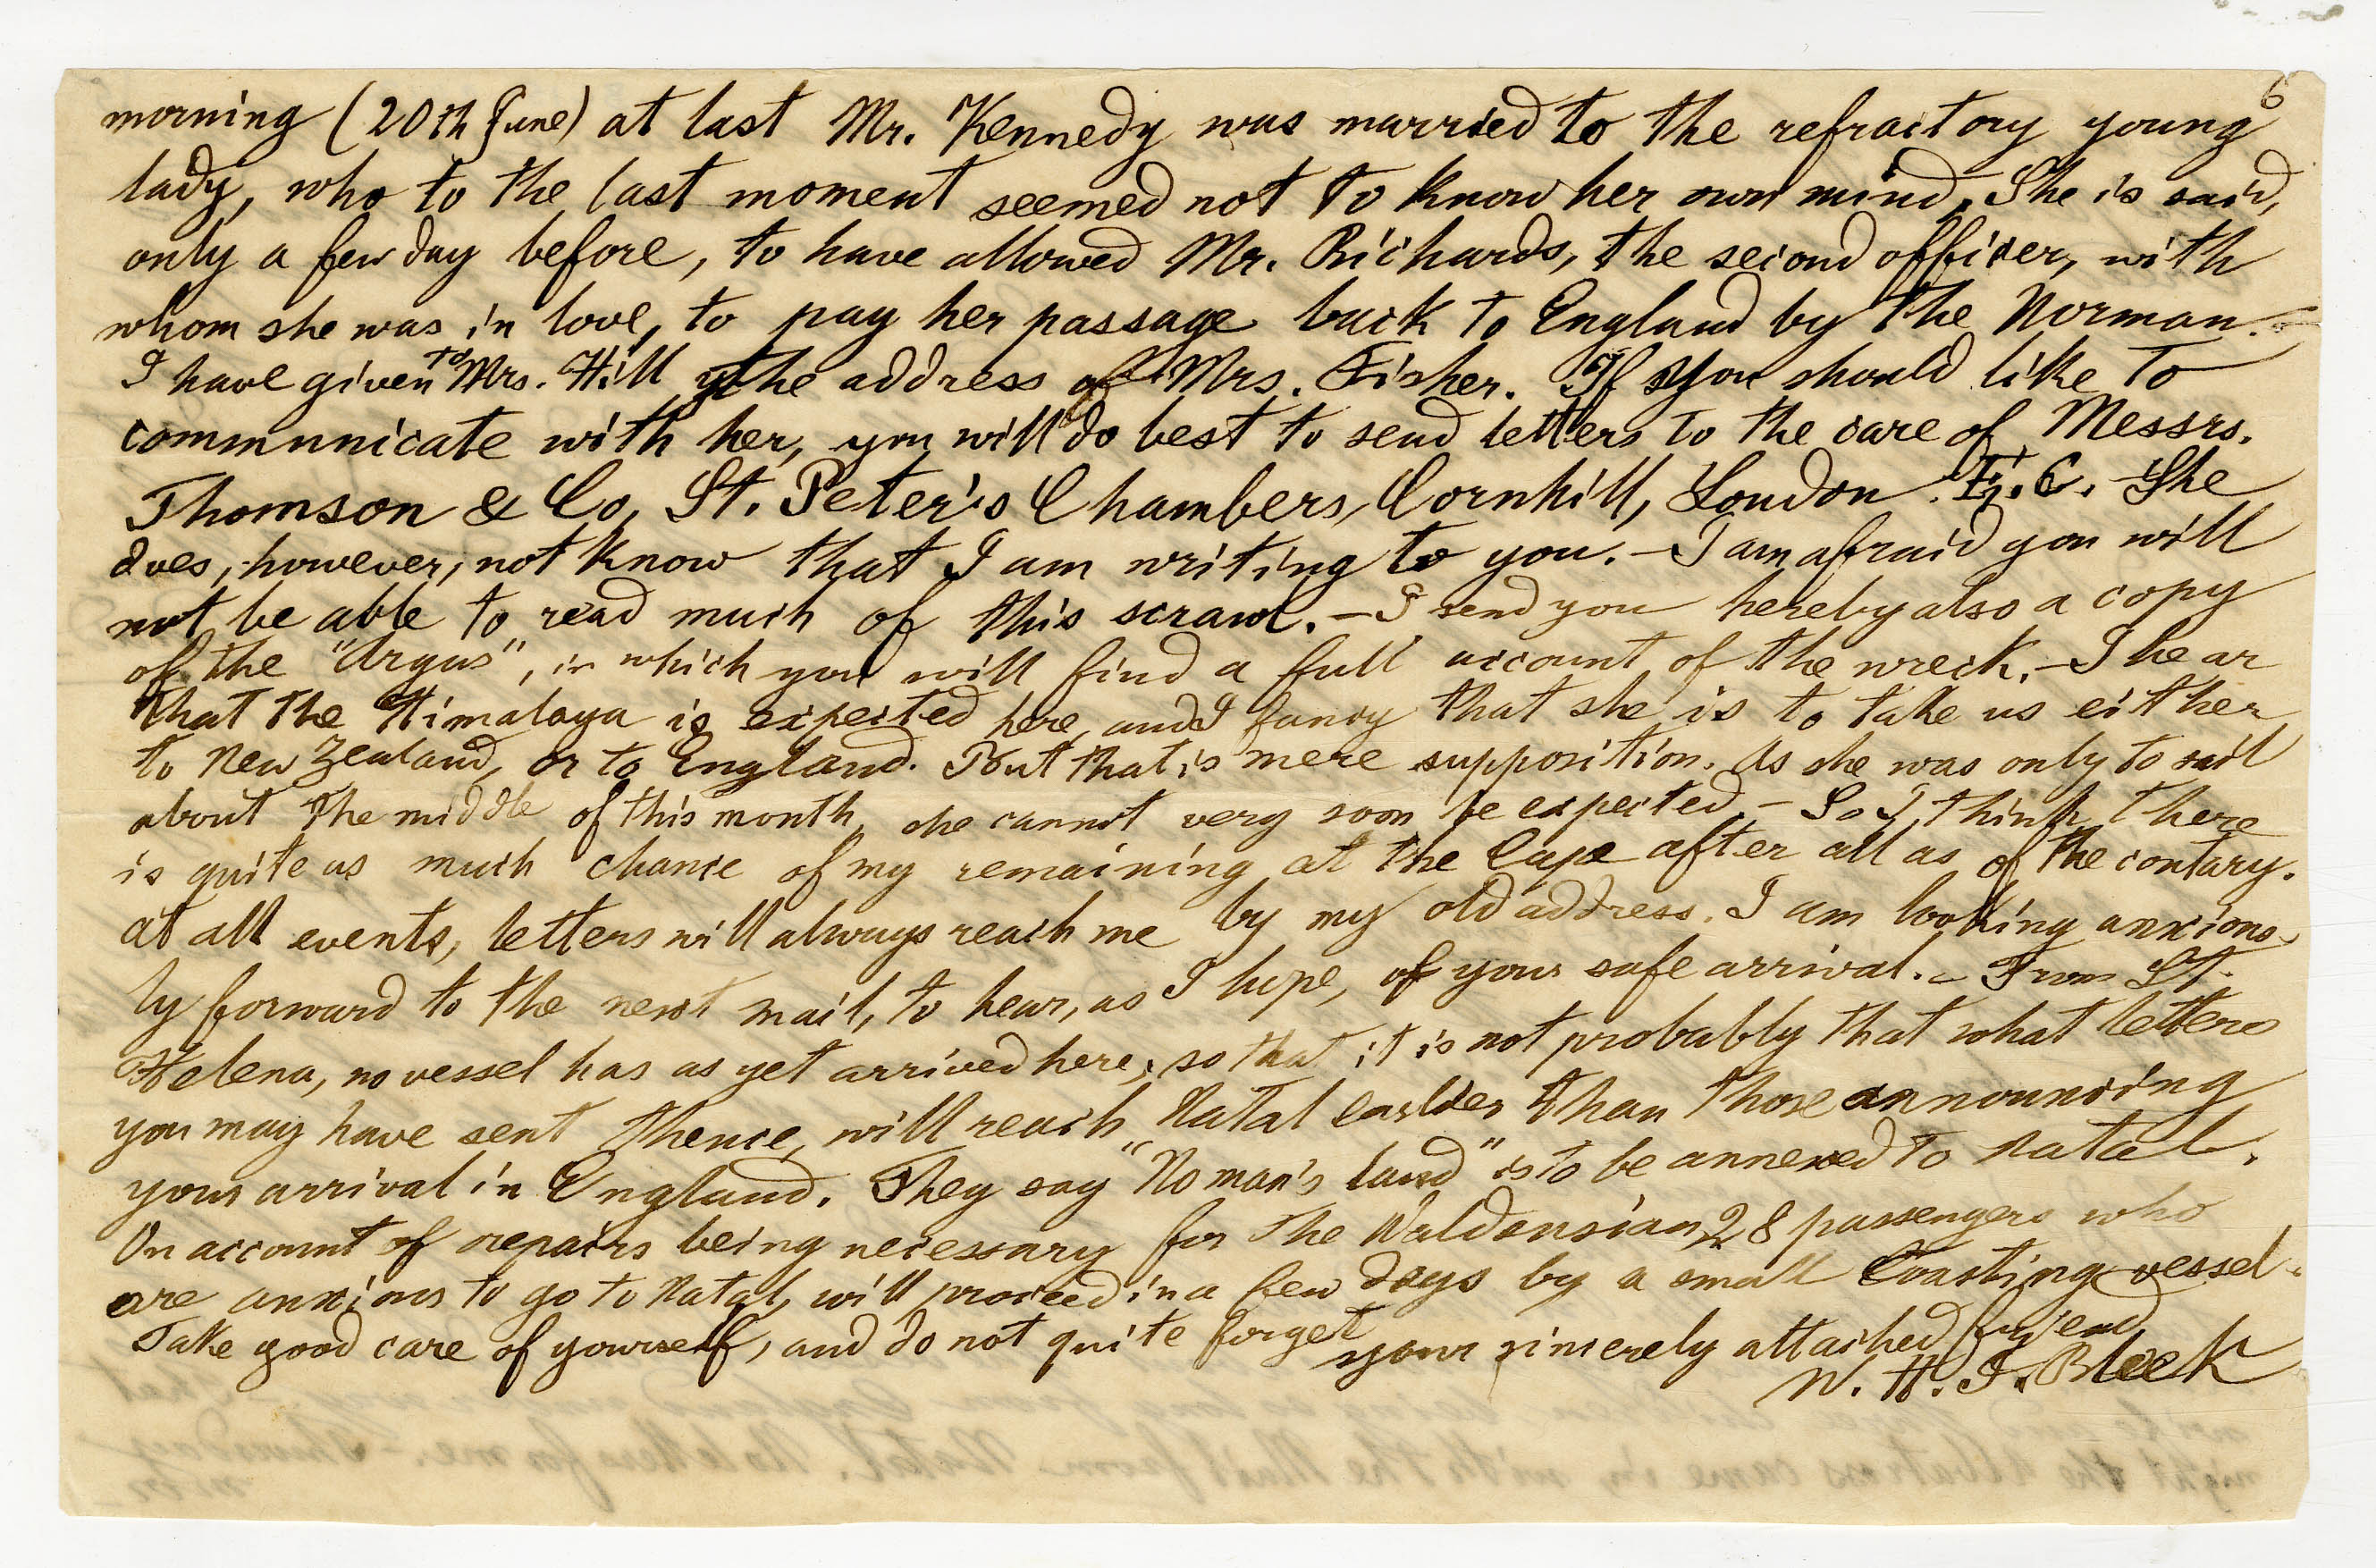 6
morning (20th June) at last Mr. Kennedy was married to the refractory young
lady, who to the last moment seemed not to know her own mind. She is said,
only a few day before, to have allowed Mr. Richards, the second officer, with
whom she was in love, to pay her passage back to England by the Norman.
I have given to Mrs. Hill the address of Mrs. Fisher. If you should like to
communicate with her, you will do best to send letters to the care of Messrs.
Thomson & Co, St. Peter's Chambers, Cornhill, London. E.C. She
does, however, not know that I am writing to you. – I am afraid you will
not be able to read much of this scrawl. – I send you hereby also a copy
of the "Argus", in which you will find a full account of the wreck. – I hear
that the Himalaya is expected here, and I fancy that she is to take us either
to New Zealand, or to England. But that is mere supposition. As she was only to sail
about the middle of this month, she cannot very soon be expected. – So I think there
is quite as much chance of my remaining at the Cape after all as of the contary.
At all events, letters will always reach me by my old address. I am looking anxious-
ly forward to the next mail, to hear, as I hope, of your safe arrival. – From St.
Helena, no vessel has as yet arrived here, so that it is not probably that what letters
you may have sent thence, will reach Natal earlier than those announcing
your arrival in England. They say "No man's land" is to be annexed to Natal.
On account of repairs being necessary for the Waldensian 28 passengers who
are anxious to go to Natal, will proceed in a few days by a small Coasting vessel.
Take good care of yourself, and do not quite forget
your sincerely attached friend
W. H. I. Bleek